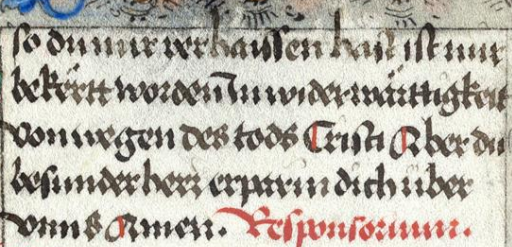 so du mir verhaissen hast ist mir
bekërtt worden In widerwärttigkeit
von wegen des tods Cristi Aber du
besunder herr erparm dich über
vnns Amen. Responsorium.